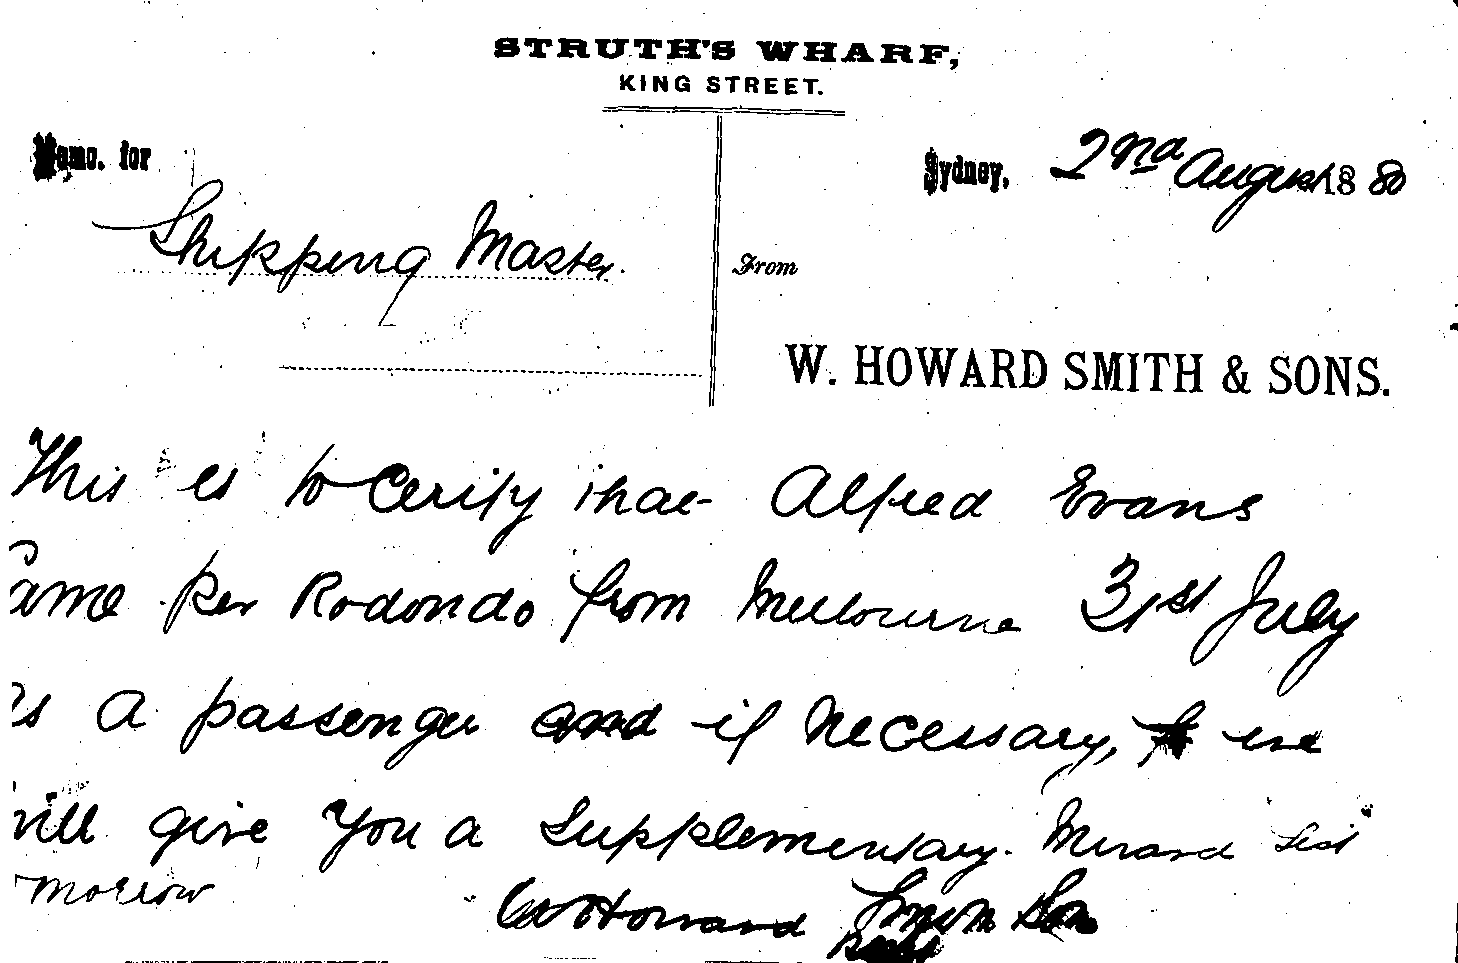 STRUTH'S WHARF,
KING STREET.
Memo. for
Sydney, 2nd August 1880
Shipping Master.
From
W. HOWARD SMITH & SONS.
This is to Cerify that Alfred Evans
Came per Rodondo from Melbourne 31st July
as a passenger and if necessary, we
will give you a Supplementary List
morrow
W Howard Smith & Son